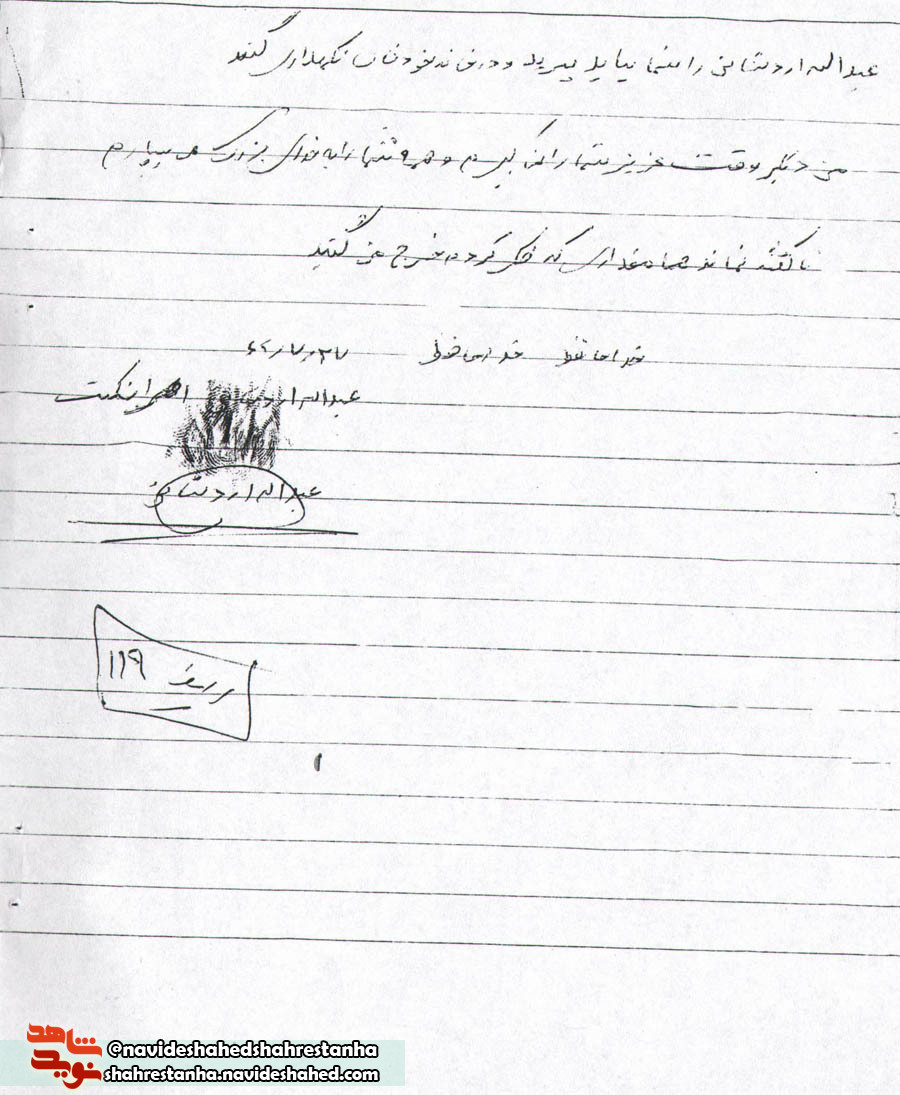 عبداله اردستانی را شما بیاید ببرید و در خانه خودتان نگهداری کنید
من دیگر وقت عزیز شما را نمی گیرم و همه شما را به خدای بزرگ می سپارم
نا گفته نماند همان مقداری که ذکر کردم خرج من کنید
خداحافظ خداحافظ
۶۲/۷/۲۷
عبداله اردستانی اثر انگشت
عبداله اردستانی
ردیف ۱۱۹
۱
شاهد
نوید
@navideshahedshahrestanha
shahrestanha.navideshahed.com